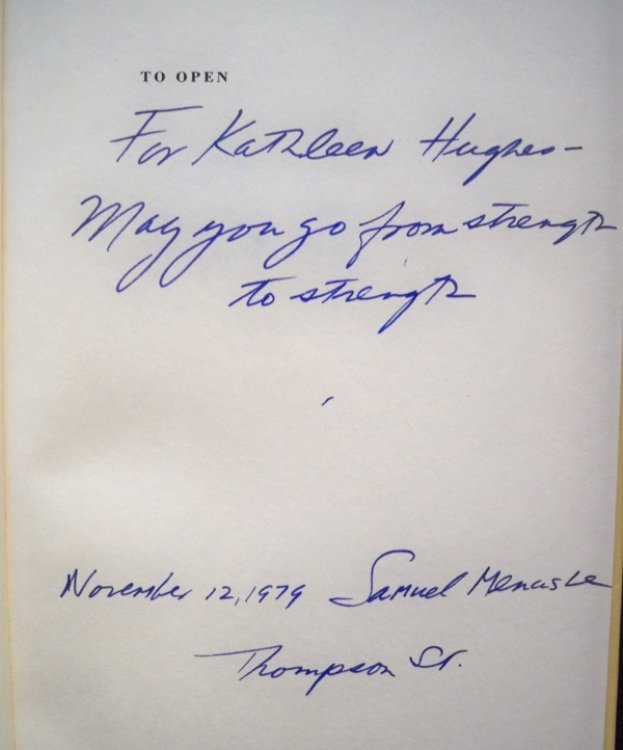 TO OPEN
For Kathleen Hughes-
May you go from strength
to strength
November 12, 1979 Samuel Menashe
Thompson St.